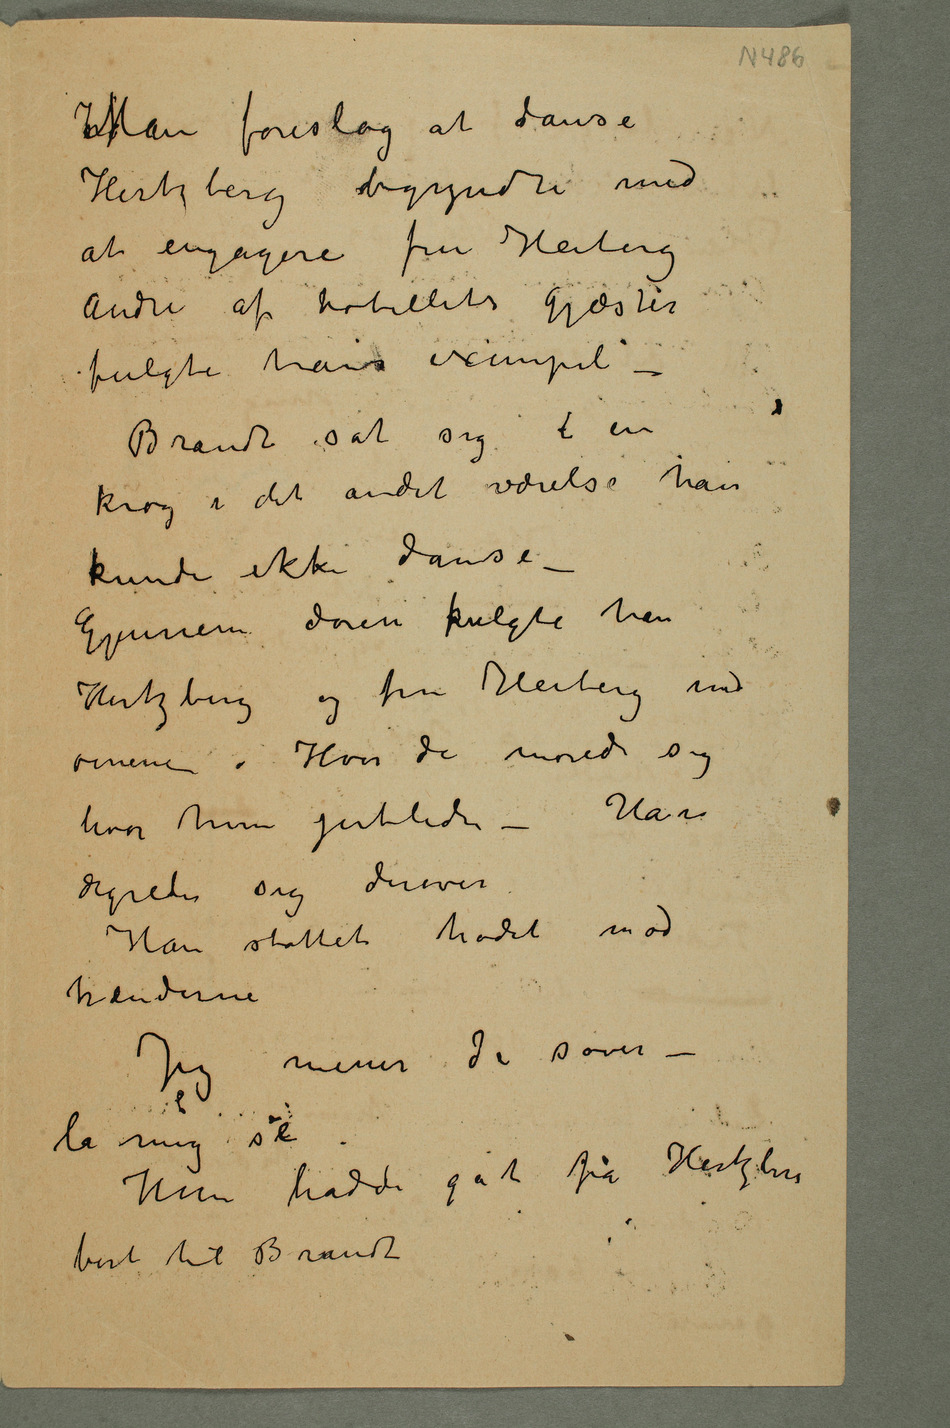 N486
Man foreslog at danse
Hertzberg begyndte med
at engagere fru Heiberg
Andre af hotellets gjæster
fulgte hans exempel –
Brandt sat sig i en
krog i det andet værelse han
kunde ikke danse –
Gjennem døren fulgte han
Hertzberg og fru Heiberg med
øinene. Hvor de mored sig
hvor hun jublede – Han
ægrede sig derover
Han støttet hodet mod
hænderne
Jeg mener De sover –
la mig se.
Hun hadde gåt fra Hertzberg
bort til Brandt